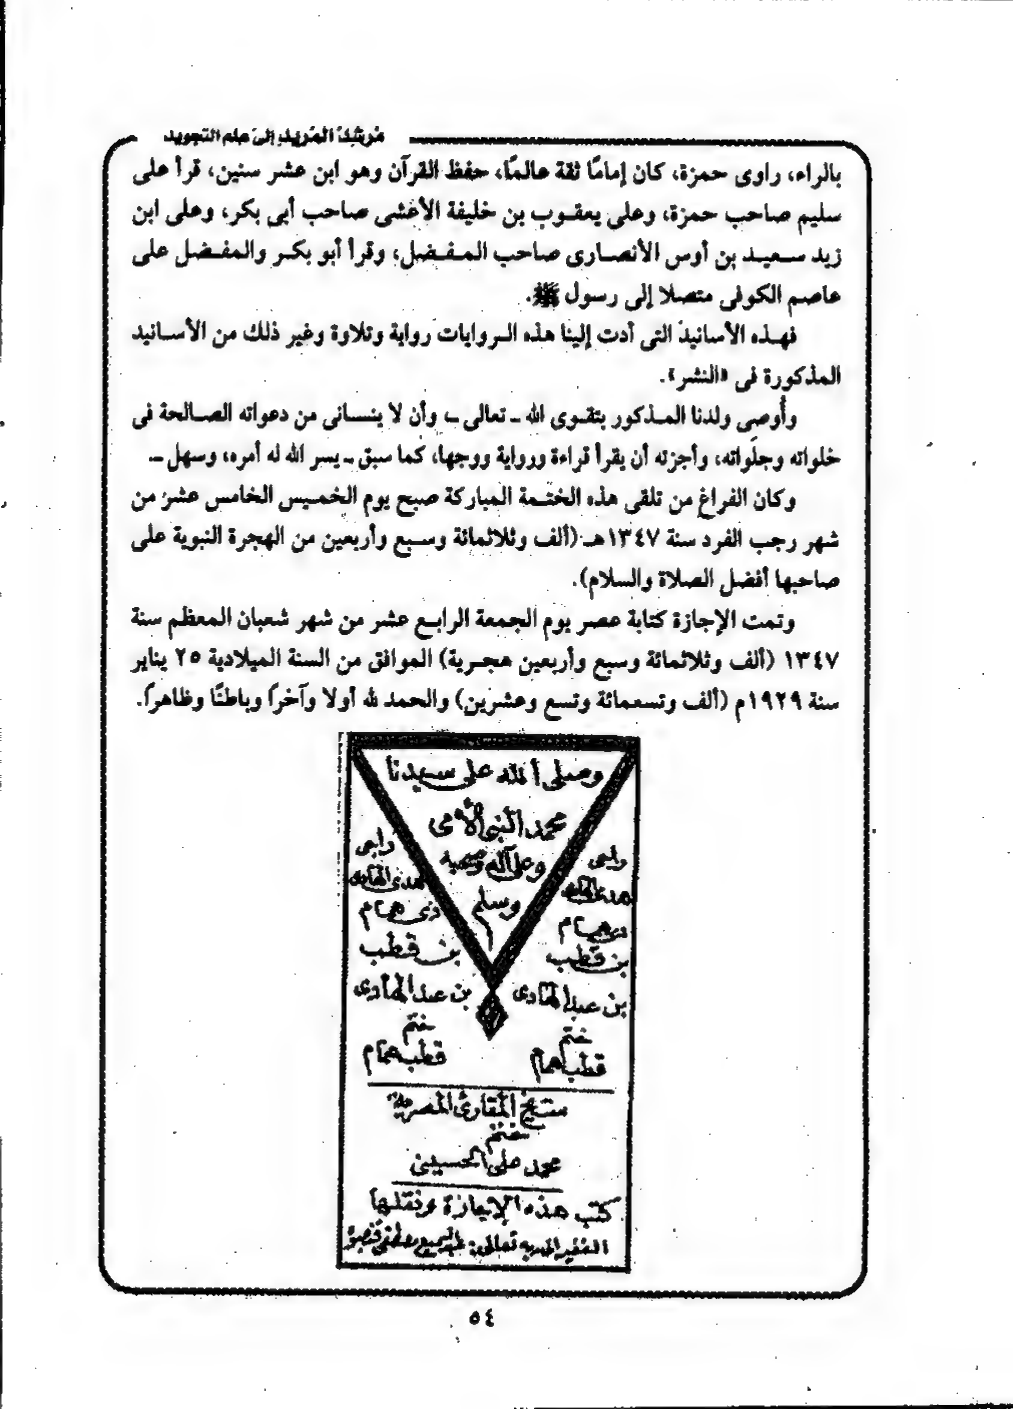 مرشد المريد إلى علم التجويد
بالراء، راوى حمزة، كان إمامًا ثقة عالمًا، حفظ القرآن وهو ابن عشر سنين، قرأ على
سليم صاحب حمزة، وعلى يعقوب بن خليفة الأعشى صاحب أبى بكر، وعلى ابن
زيد سعيد بن أوس الأنصارى صاحب المفضل، وقرأ أبو بكر والمفضل على
عاصم الكوفى متصلا إلى رسول ﷺ.
فهذه الأسانيد التى أدت إلينا هذه الروايات رواية وتلاوة وغير ذلك من الأسانيد
المذكورة فى «النشر».
وأُوصى ولدنا المذكور بتقوى الله ـ تعالى ـ، وأن لا ينسانى من دعواته الصالحة فى
خلواته وجلَواته، وأجزته أن يقرأ قراءة ورواية ووجها، كما سبق ـ يسر الله له أمره، وسهل ـ
وكان الفراغ من تلقى هذه الختمة المباركة صبح يوم الخميس الخامس عشر من
شهر رجب الفرد سنة ١٣٤٧هـ (ألف وثلاثمائة وسبع وأربعين من الهجرة النبوية على
صاحبها أفضل الصلاة والسلام).
وتمت الإجازة كتابة عصر يوم الجمعة الرابع عشر من شهر شعبان المعظم سنة
١٣٤٧ (ألف وثلاثمائة وسبع وأربعين هجرية) الموافق من السنة الميلادية ٢٥ يناير
سنة ١٩٢٩م (ألف وتسعمائة وتسع وعشرين) والحمد لله أولا وآخرًا وباطنًا وظاهرًا.
وصلى الله على سيدنا
محمد النبى الأمى
وعلى آله وصحبه
وسلم
راجى
هدى الهادى
ذى همام
بن قطب
بن عبد الهادى
ختم
قطب همام
راجى
هدى الهادى
ذى همام
بن قطب
بن عبد الهادى
ختم
قطب همام
شيخ المقارئ المصرية
ختم
محمد على الحسينى
كتب هذه الإجازة ونقلها
الفقير إلى ربه تعالى
٥٤